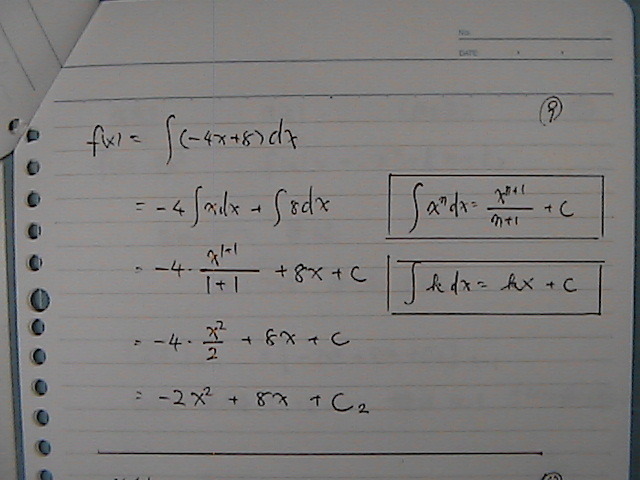 No.
DATE
⑨
f(x) = ∫(-4x+8)dx
= -4∫xdx + ∫8dx
∫xⁿdx = xⁿ⁺¹/n+1 + C
= -4 · x¹⁺¹/1+1 + 8x + C
∫k dx = kx + C
= -4 · x²/2 + 8x + C
= -2x² + 8x + C₂